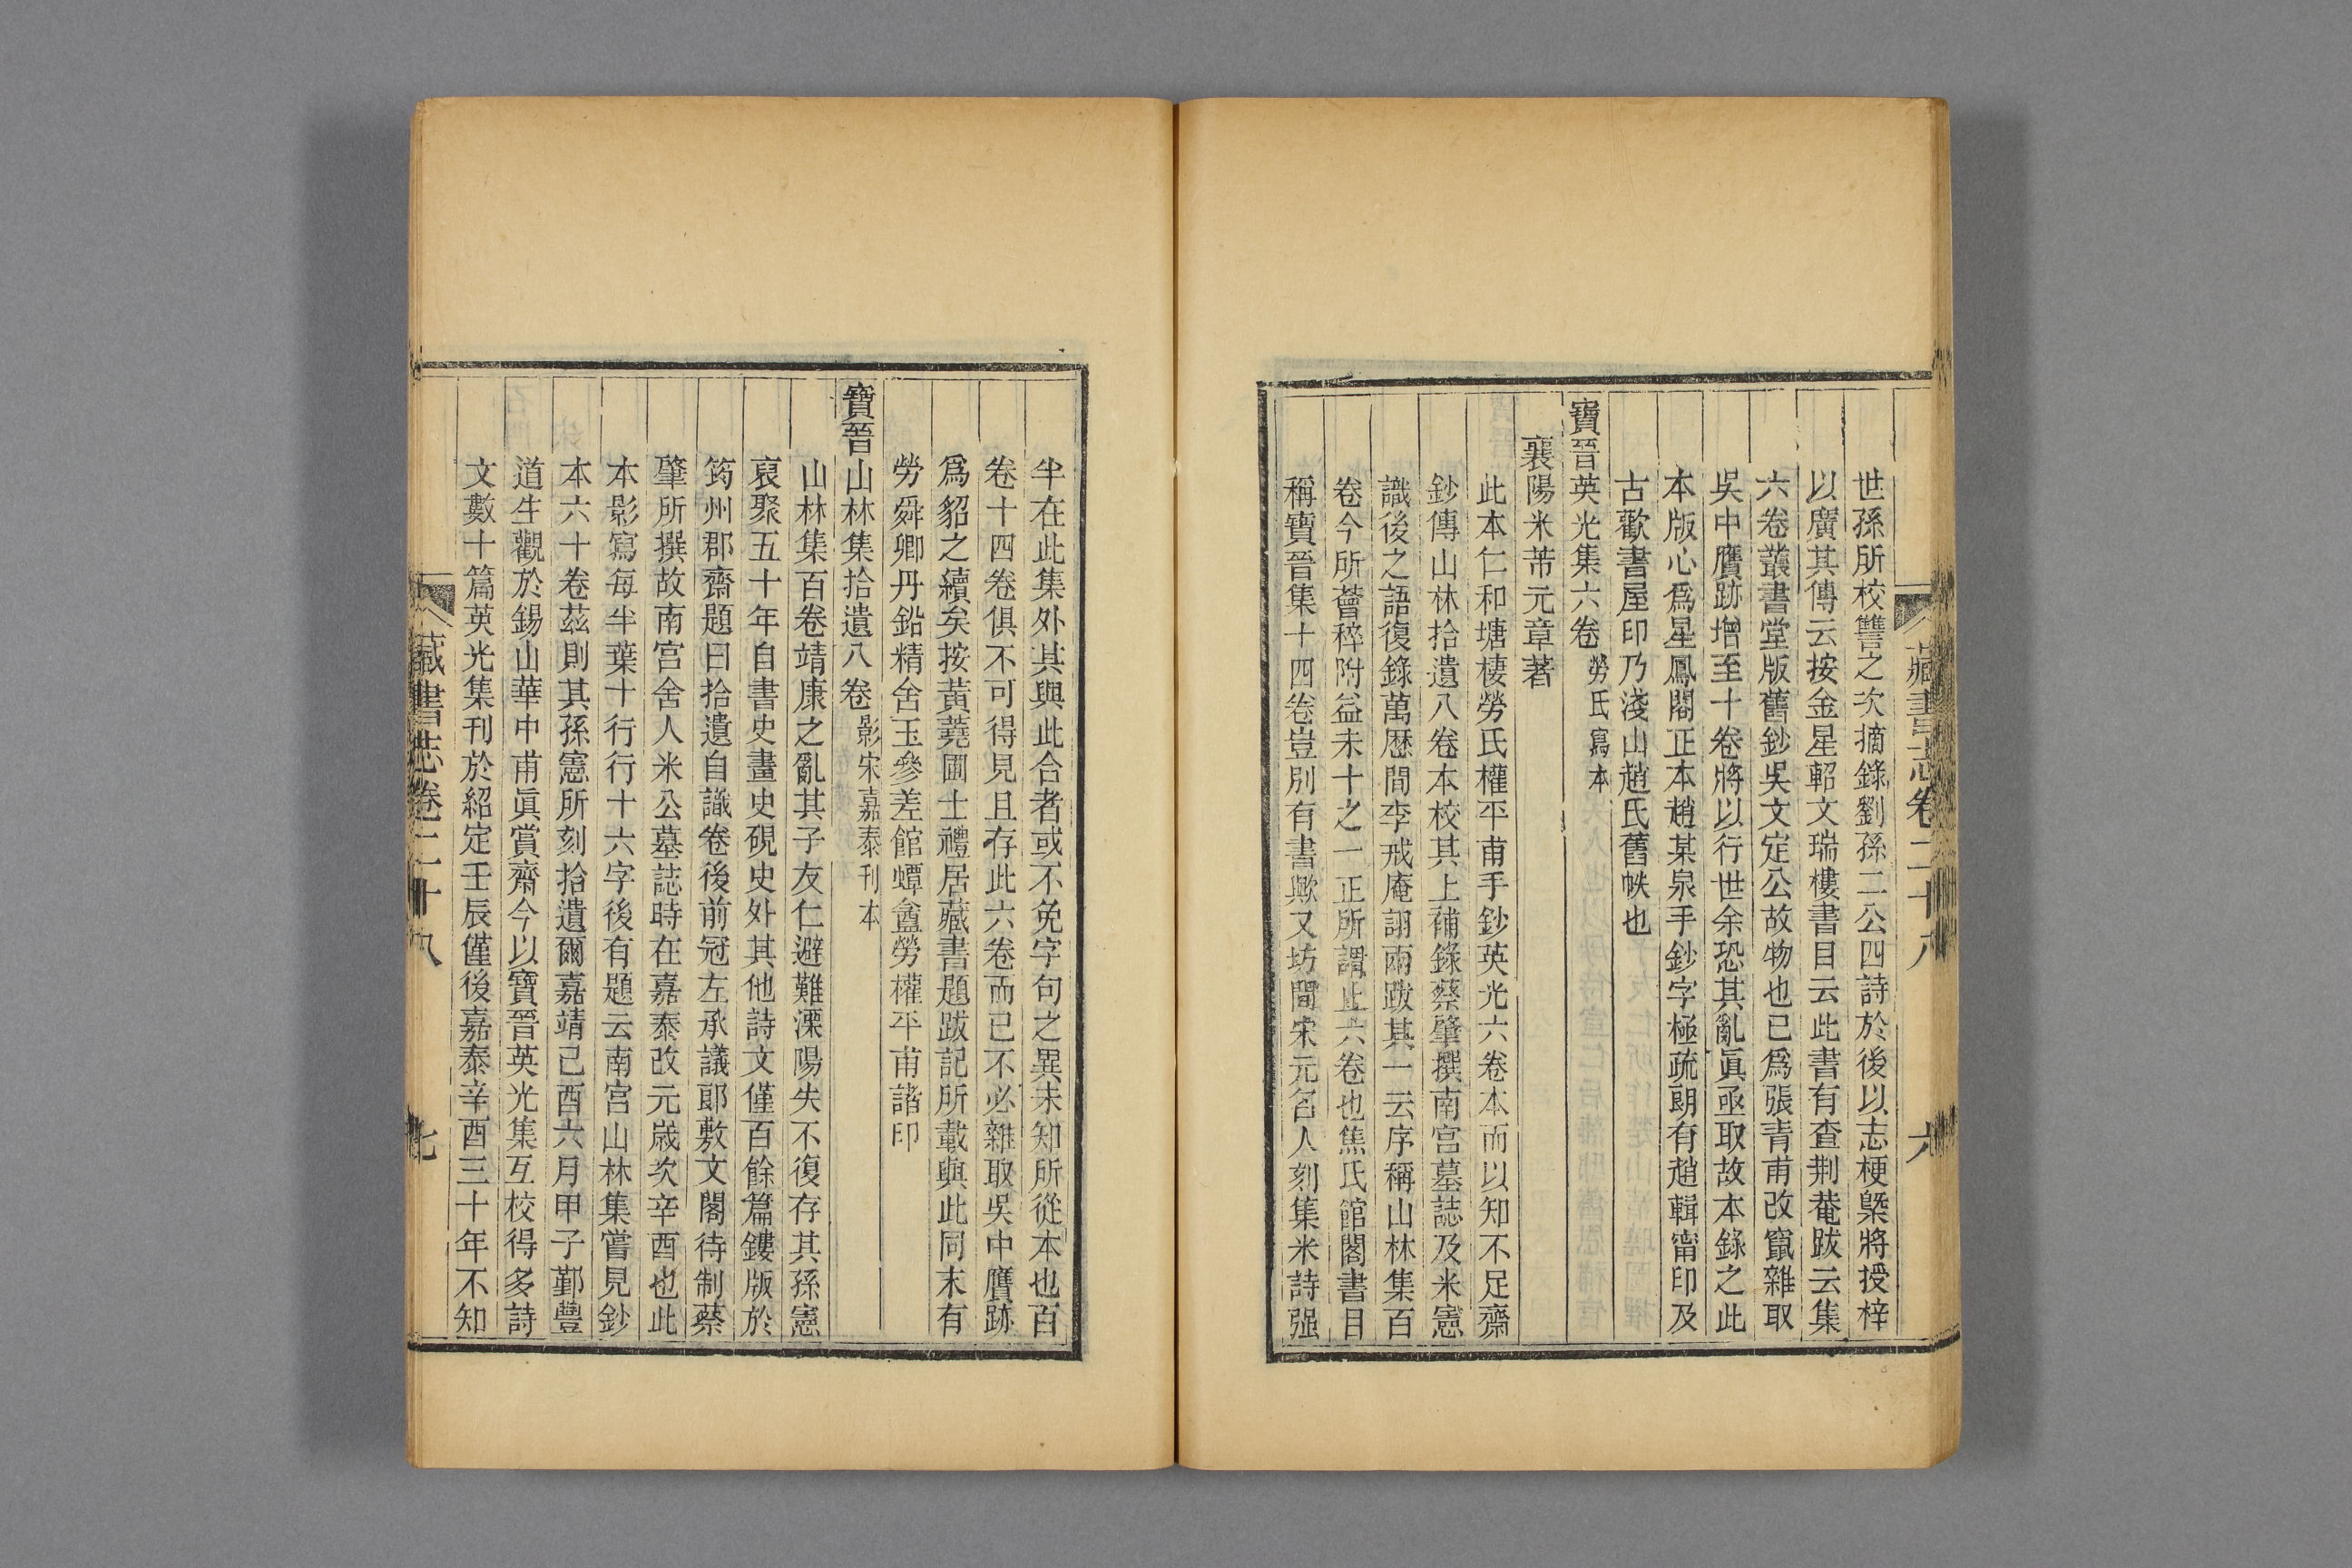 藏書志卷二十八 六
世孫所校讐之次摘錄劉孫二公四詩於後以志梗槩將授梓
以廣其傳云按金星軺文瑞樓書目云此書有查荆菴跋云集
六卷叢書堂版舊鈔吳文定公故物也已爲張青甫改竄雜取
吳中贋跡增至十卷將以行世余恐其亂眞亟取故本錄之此
本版心爲星鳳閣正本趙某泉手鈔字極疏朗有趙輯甯印及
古歡書屋印乃淺山趙氏舊帙也
寶晉英光集六卷 勞氏寫本
襄陽米芾元章著
此本仁和塘棲勞氏權平甫手鈔英光六卷本而以知不足齋
鈔傳山林拾遺八卷本校其上補錄蔡肇撰南宮墓誌及米憲
識後之語復錄萬厯間李戒庵詡兩跋其一云序稱山林集百
卷今所薈稡附益未十之一正所謂止六卷也焦氏館閣書目
稱寶晉集十四卷豈別有書歟又坊間宋元名人刻集米詩强
半在此集外其與此合者或不免字句之異未知所從本也百
卷十四卷俱不可得見且存此六卷而已不必雜取吳中贋跡
爲貂之續矣按黃蕘圃士禮居藏書題跋記所載與此同末有
勞舜卿丹鉛精舍玉參差館蟫盫勞權平甫諸印
寶晉山林集拾遺八卷 影宋嘉泰刊本
山林集百卷靖康之亂其子友仁避難溧陽失不復存其孫憲
裒聚五十年自書史畫史硯史外其他詩文僅百餘篇鏤版於
筠州郡齋題曰拾遺自識卷後前冠左承議郞敷文閣待制蔡
肇所撰故南宮舍人米公墓誌時在嘉泰改元歲次辛酉也此
本影寫每半葉十行行十六字後有題云南宮山林集嘗見鈔
本六十卷茲則其孫憲所刻拾遺爾嘉靖己酉六月甲子鄞豐
道生觀於錫山華中甫眞賞齋今以寶晉英光集互校得多詩
文數十篇英光集刊於紹定壬辰僅後嘉泰辛酉三十年不知
藏書志卷二十八 七